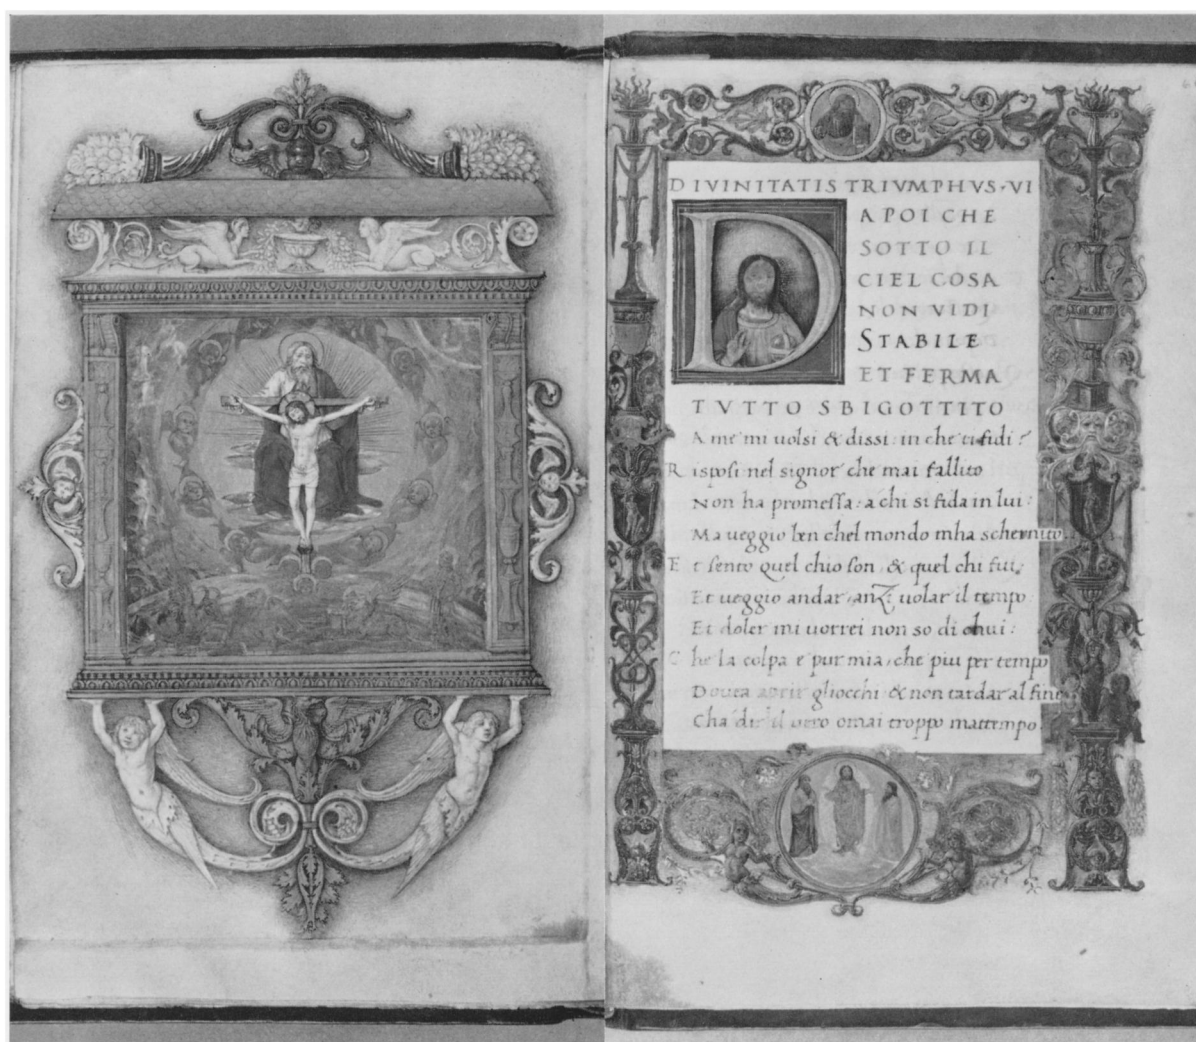 DIVINITATIS TRIVMPHVS·VI
DA POI CHE
SOTTO IL
CIEL COSA
NON VIDI
STABILE
ET FERMA
TVTTO SBIGOTTITO
A me mi uolsi & dissi: in che ti fidi?
Risposi nel signor che mai fallito
Non ha promessa: a chi si fida in lui:
Ma ueggio ben chel mondo mha schernito.
Et sento quel chio son, & quel chi fui,
Et ueggio andar, anzi uolar il tempo
Et doler mi uorrei non so di chui:
Che la colpa e pur mia, che piu per tempo
Douea aprir gliocchi & non tardar al fine
Cha dir il uero omai troppo mattempo